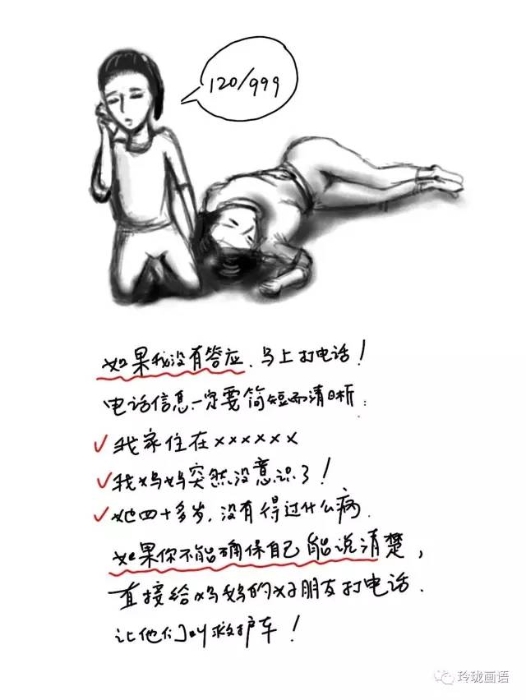 120/999
如果我没有答应,马上打电话!
电话信息一定要简短而清晰:
✓我家住在xxxxxx
✓我妈妈突然没意识了!
✓她四十多岁,没有得过什么病.
如果你不能确保自己能说清楚,
直接给妈妈的好朋友打电话.
让他们叫救护车!
玲珑画语